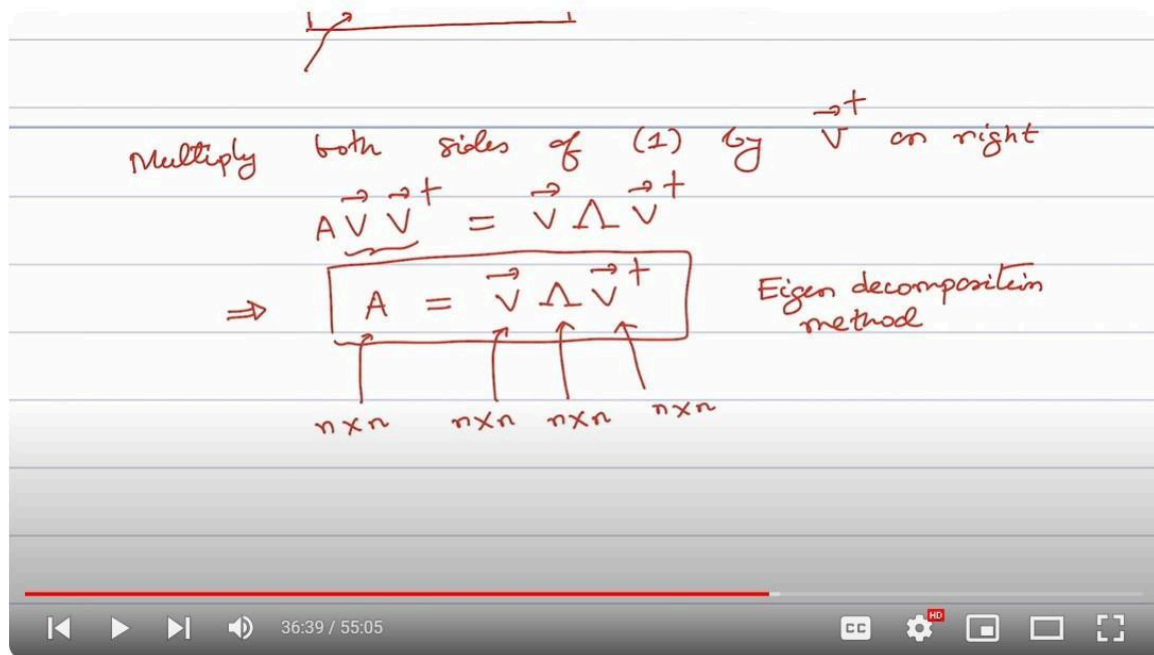 Multiply both sides of (1) by V⃗⁺ on right
A V⃗ V⃗⁺ = V⃗ Λ V⃗⁺
⇒ A = V⃗ Λ V⃗⁺ Eigen decomposition method
n×n n×n n×n n×n
36:39 / 55:05
CC
HD